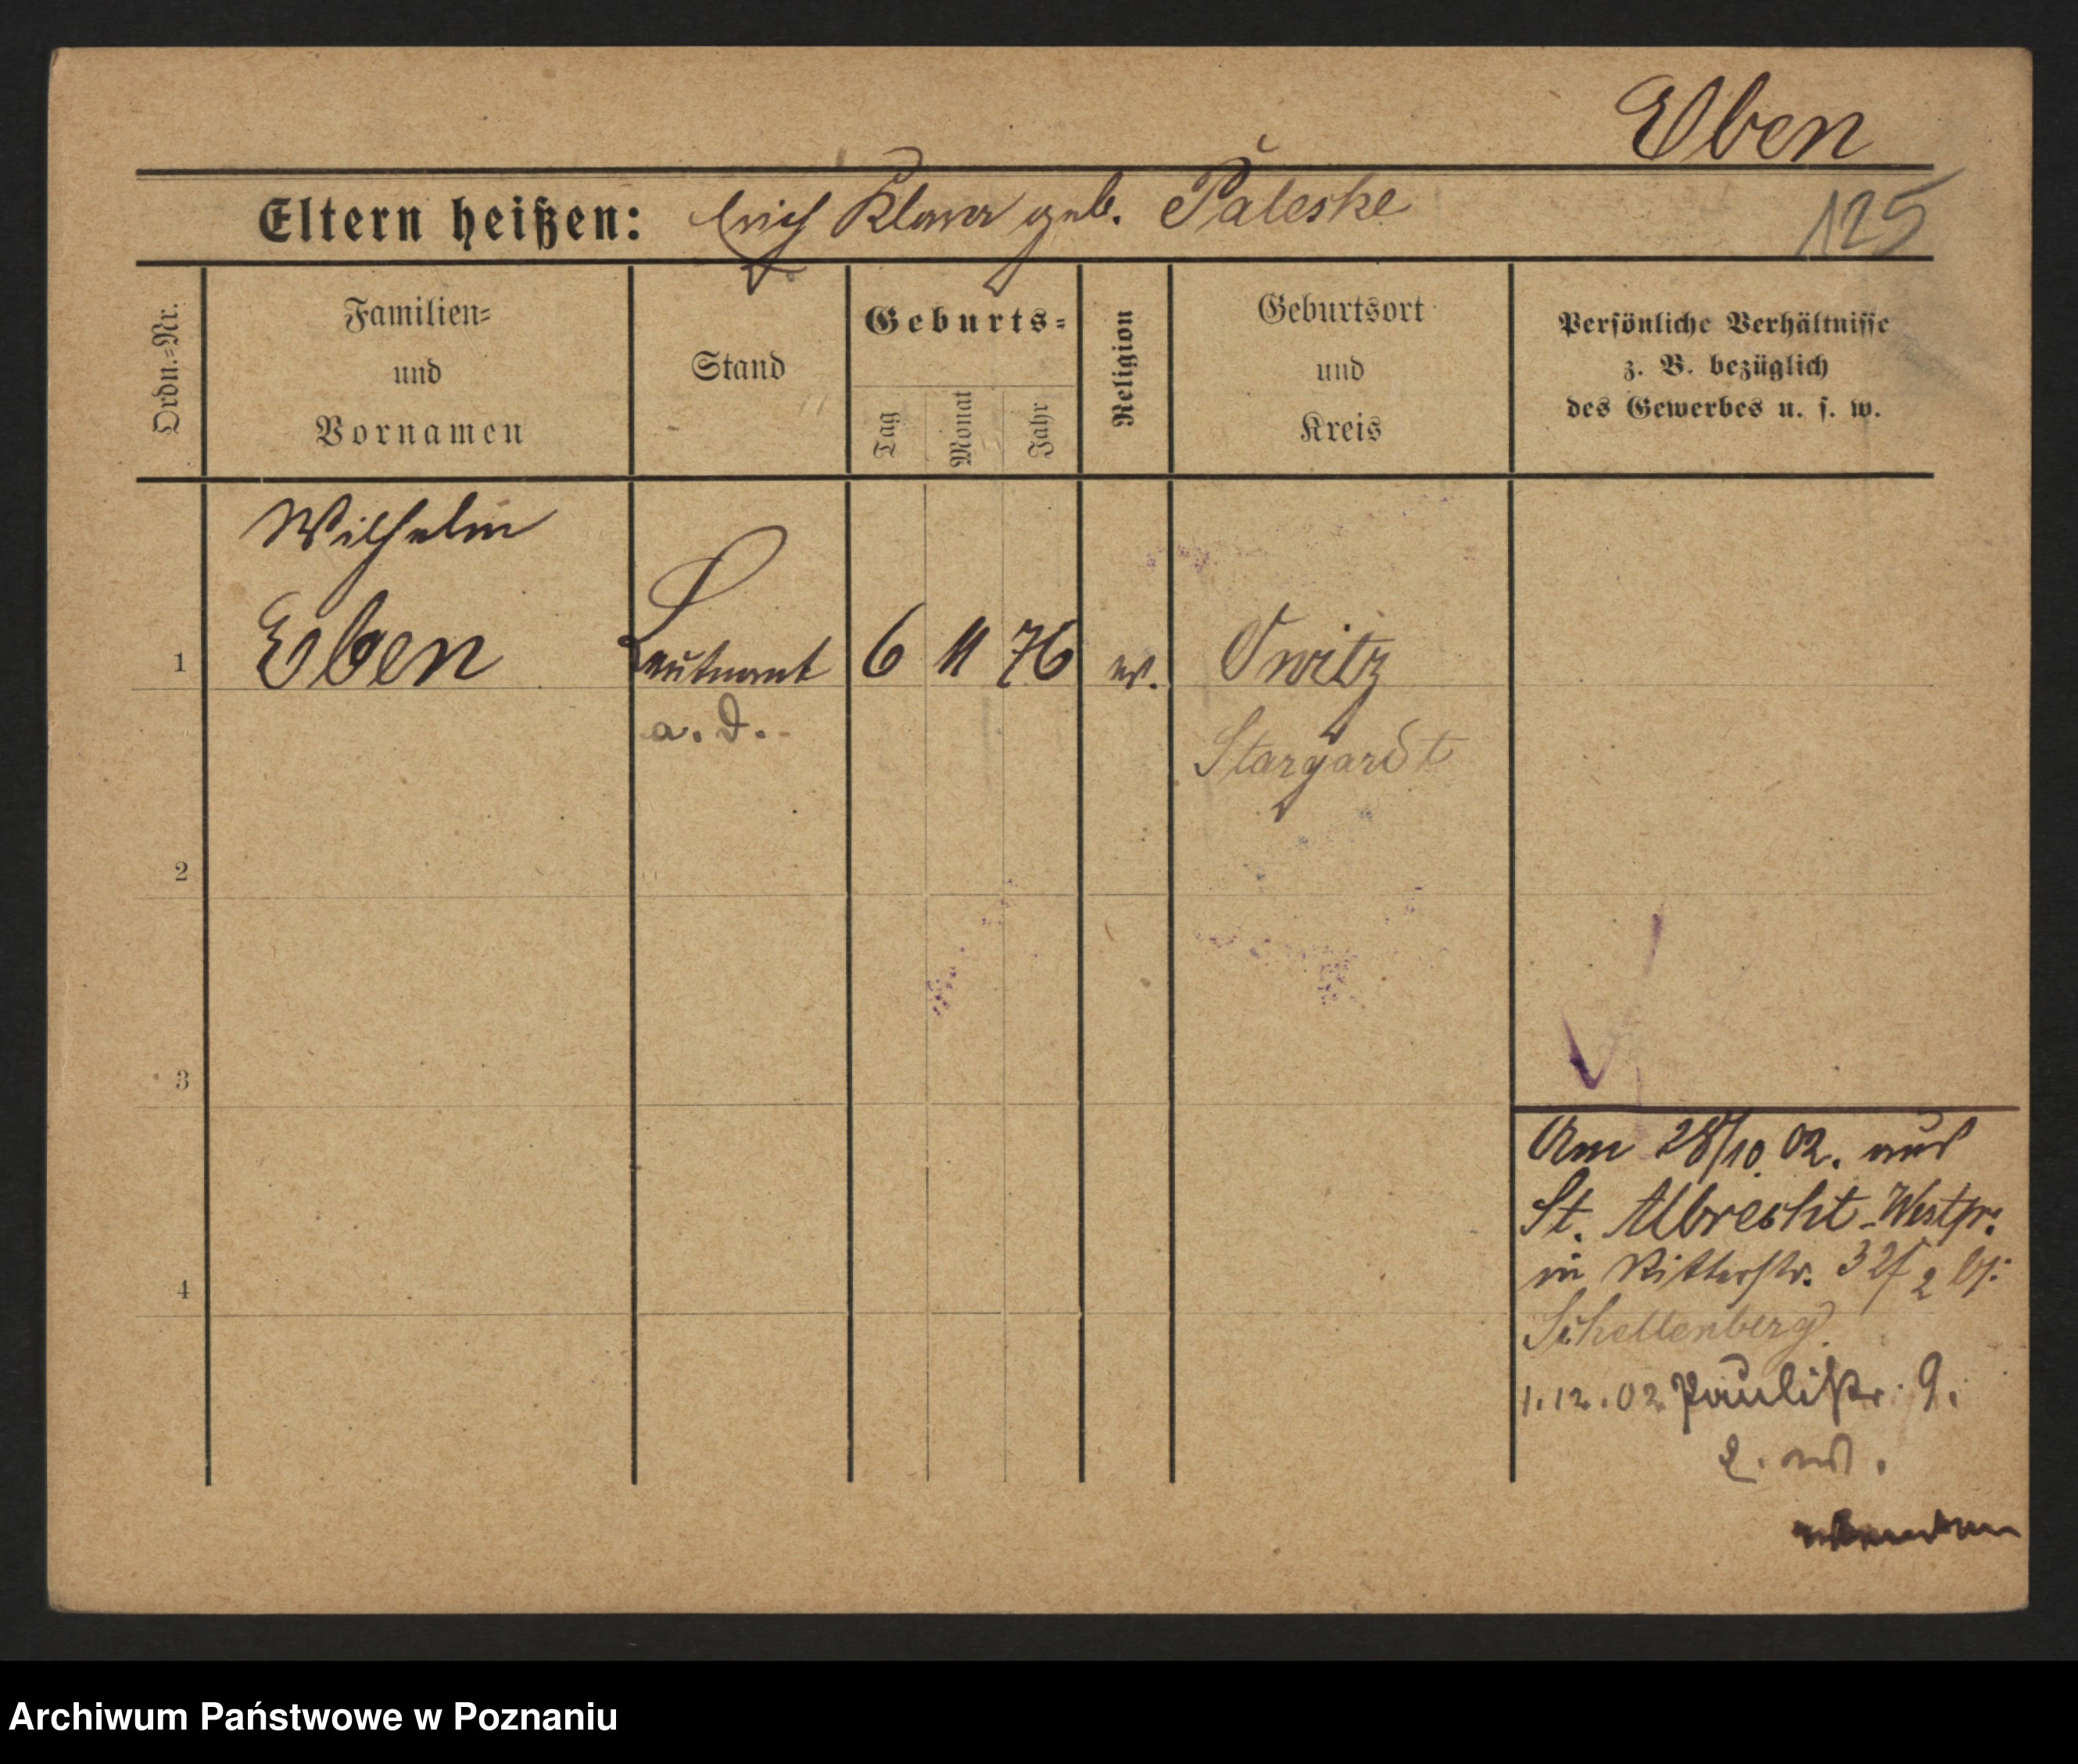 Eben
Eltern heißen: Erich Klara geb. Paleske
125
Ordn.=Nr.
Familien=
und
Vornamen
Stand
Geburts=
Tag
Monat
Jahr
Religion
Geburtsort
und
Kreis
Persönliche Verhältnisse
z. B. bezüglich
des Gewerbes u. s. w.
Wilhelm
1 Eben Leutnant 6 11 76 ev. Owitz
a. D.
Stargardt
2
3
4
Am 28/10. 02. aus
St. Albrecht Westpr.
in Ritterstr. 32
Schellenberg
1.12.02 Paulistr. 9.
Archiwum Państwowe w Poznaniu